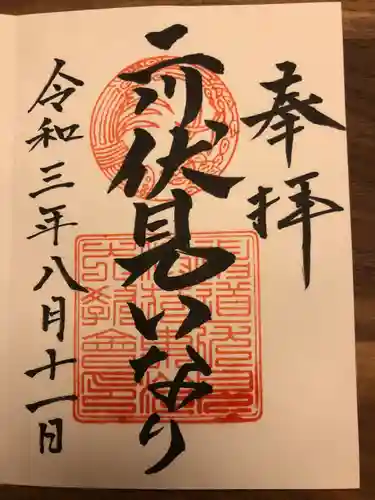 奉拝
二川伏見いなり
令和三年八月十一日